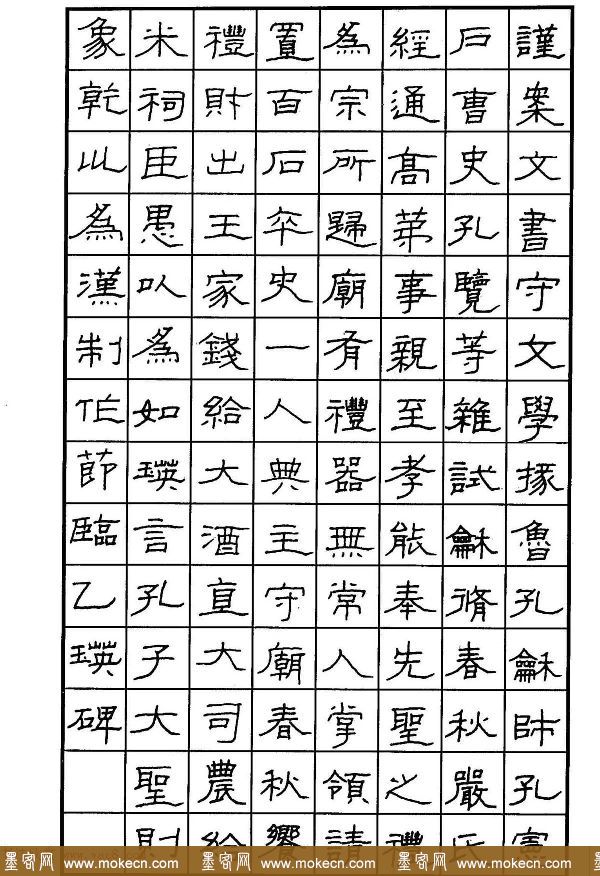 謹案文書守文學掾魯孔龢師孔憲
戶曹史孔覽等雜試龢脩春秋嚴氏
經通高第事親至孝能奉先聖之禮
為宗所歸廟有禮器無常人掌領請
置百石卒史一人典主守廟春秋饗
禮財出王家錢給大酒直大司農給
米祠臣愚以為如瑛言孔子大聖則
象乾以為漢制作節臨乙瑛碑
墨客网 www.mokecn.com 墨客网 www.mokecn.com 墨客网 www.mokecn.com